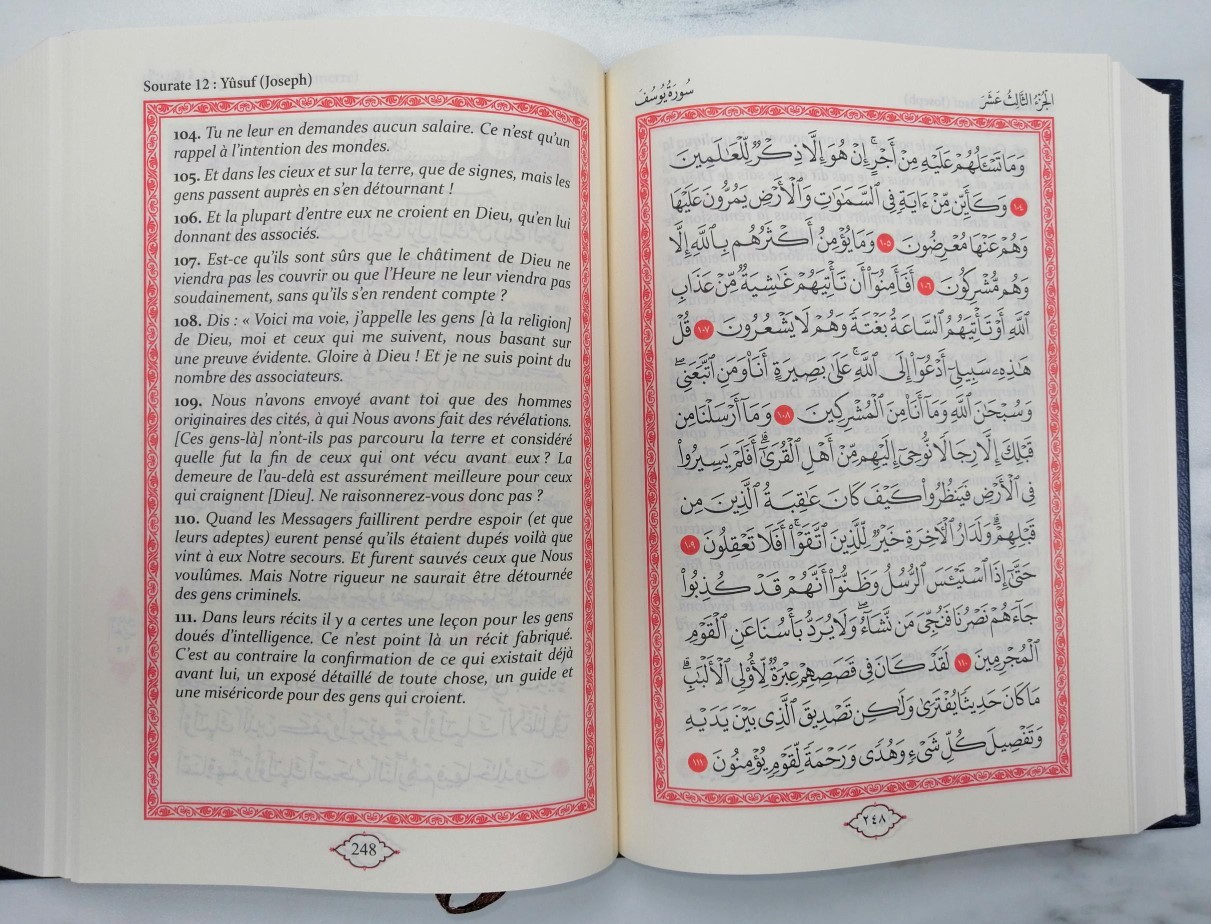 Sourate 12 : Yûsuf (Joseph)
104. Tu ne leur en demandes aucun salaire. Ce n'est qu'un
rappel à l'intention des mondes.
105. Et dans les cieux et sur la terre, que de signes, mais les
gens passent auprès en s'en détournant !
106. Et la plupart d'entre eux ne croient en Dieu, qu'en lui
donnant des associés.
107. Est-ce qu'ils sont sûrs que le châtiment de Dieu ne
viendra pas les couvrir ou que l'Heure ne leur viendra pas
soudainement, sans qu'ils s'en rendent compte ?
108. Dis : « Voici ma voie, j'appelle les gens [à la religion]
de Dieu, moi et ceux qui me suivent, nous basant sur
une preuve évidente. Gloire à Dieu ! Et je ne suis point du
nombre des associateurs.
109. Nous n'avons envoyé avant toi que des hommes
originaires des cités, à qui Nous avons fait des révélations.
[Ces gens-là] n'ont-ils pas parcouru la terre et considéré
quelle fut la fin de ceux qui ont vécu avant eux ? La
demeure de l'au-delà est assurément meilleure pour ceux
qui craignent [Dieu]. Ne raisonnerez-vous donc pas ?
110. Quand les Messagers faillirent perdre espoir (et que
leurs adeptes) eurent pensé qu'ils étaient dupés voilà que
vint à eux Notre secours. Et furent sauvés ceux que Nous
voulûmes. Mais Notre rigueur ne saurait être détournée
des gens criminels.
111. Dans leurs récits il y a certes une leçon pour les gens
doués d'intelligence. Ce n'est point là un récit fabriqué.
C'est au contraire la confirmation de ce qui existait déjà
avant lui, un exposé détaillé de toute chose, un guide et
une miséricorde pour des gens qui croient.
248
الجُزْءُ الثَّالِثُ عَشَرَ
سُورَةُ يُوسُفَ
وَمَا تَسْـَٔلُهُمْ عَلَيْهِ مِنْ أَجْرٍ ۚ إِنْ هُوَ إِلَّا ذِكْرٌ لِّلْعَـٰلَمِينَ
١٠٤ وَكَأَيِّن مِّنْ ءَايَةٍ فِى ٱلسَّمَـٰوَٰتِ وَٱلْأَرْضِ يَمُرُّونَ عَلَيْهَا
وَهُمْ عَنْهَا مُعْرِضُونَ ١٠٥ وَمَا يُؤْمِنُ أَكْثَرُهُم بِٱللَّهِ إِلَّا
وَهُم مُّشْرِكُونَ ١٠٦ أَفَأَمِنُوٓا۟ أَن تَأْتِيَهُمْ غَـٰشِيَةٌ مِّنْ عَذَابِ
ٱللَّهِ أَوْ تَأْتِيَهُمُ ٱلسَّاعَةُ بَغْتَةً وَهُمْ لَا يَشْعُرُونَ ١٠٧ قُلْ
هَـٰذِهِۦ سَبِيلِىٓ أَدْعُوٓا۟ إِلَى ٱللَّهِ ۚ عَلَىٰ بَصِيرَةٍ أَنَا۠ وَمَنِ ٱتَّبَعَنِى ۖ
وَسُبْحَـٰنَ ٱللَّهِ وَمَآ أَنَا۠ مِنَ ٱلْمُشْرِكِينَ ١٠٨ وَمَآ أَرْسَلْنَا مِن
قَبْلِكَ إِلَّا رِجَالًا نُّوحِىٓ إِلَيْهِم مِّنْ أَهْلِ ٱلْقُرَىٰٓ ۗ أَفَلَمْ يَسِيرُوا۟
فِى ٱلْأَرْضِ فَيَنظُرُوا۟ كَيْفَ كَانَ عَـٰقِبَةُ ٱلَّذِينَ مِن
قَبْلِهِمْ ۗ وَلَدَارُ ٱلْـَٔاخِرَةِ خَيْرٌ لِّلَّذِينَ ٱتَّقَوْا۟ ۗ أَفَلَا تَعْقِلُونَ ١٠٩
حَتَّىٰٓ إِذَا ٱسْتَيْـَٔسَ ٱلرُّسُلُ وَظَنُّوٓا۟ أَنَّهُمْ قَدْ كُذِبُوا۟
جَآءَهُمْ نَصْرُنَا فَنُجِّىَ مَن نَّشَآءُ ۖ وَلَا يُرَدُّ بَأْسُنَا عَنِ ٱلْقَوْمِ
ٱلْمُجْرِمِينَ ١١٠ لَقَدْ كَانَ فِى قَصَصِهِمْ عِبْرَةٌ لِّأُو۟لِى ٱلْأَلْبَـٰبِ ۗ
مَا كَانَ حَدِيثًا يُفْتَرَىٰ وَلَـٰكِن تَصْدِيقَ ٱلَّذِى بَيْنَ يَدَيْهِ
وَتَفْصِيلَ كُلِّ شَىْءٍ وَهُدًى وَرَحْمَةً لِّقَوْمٍ يُؤْمِنُونَ ١١١
٢٤٨